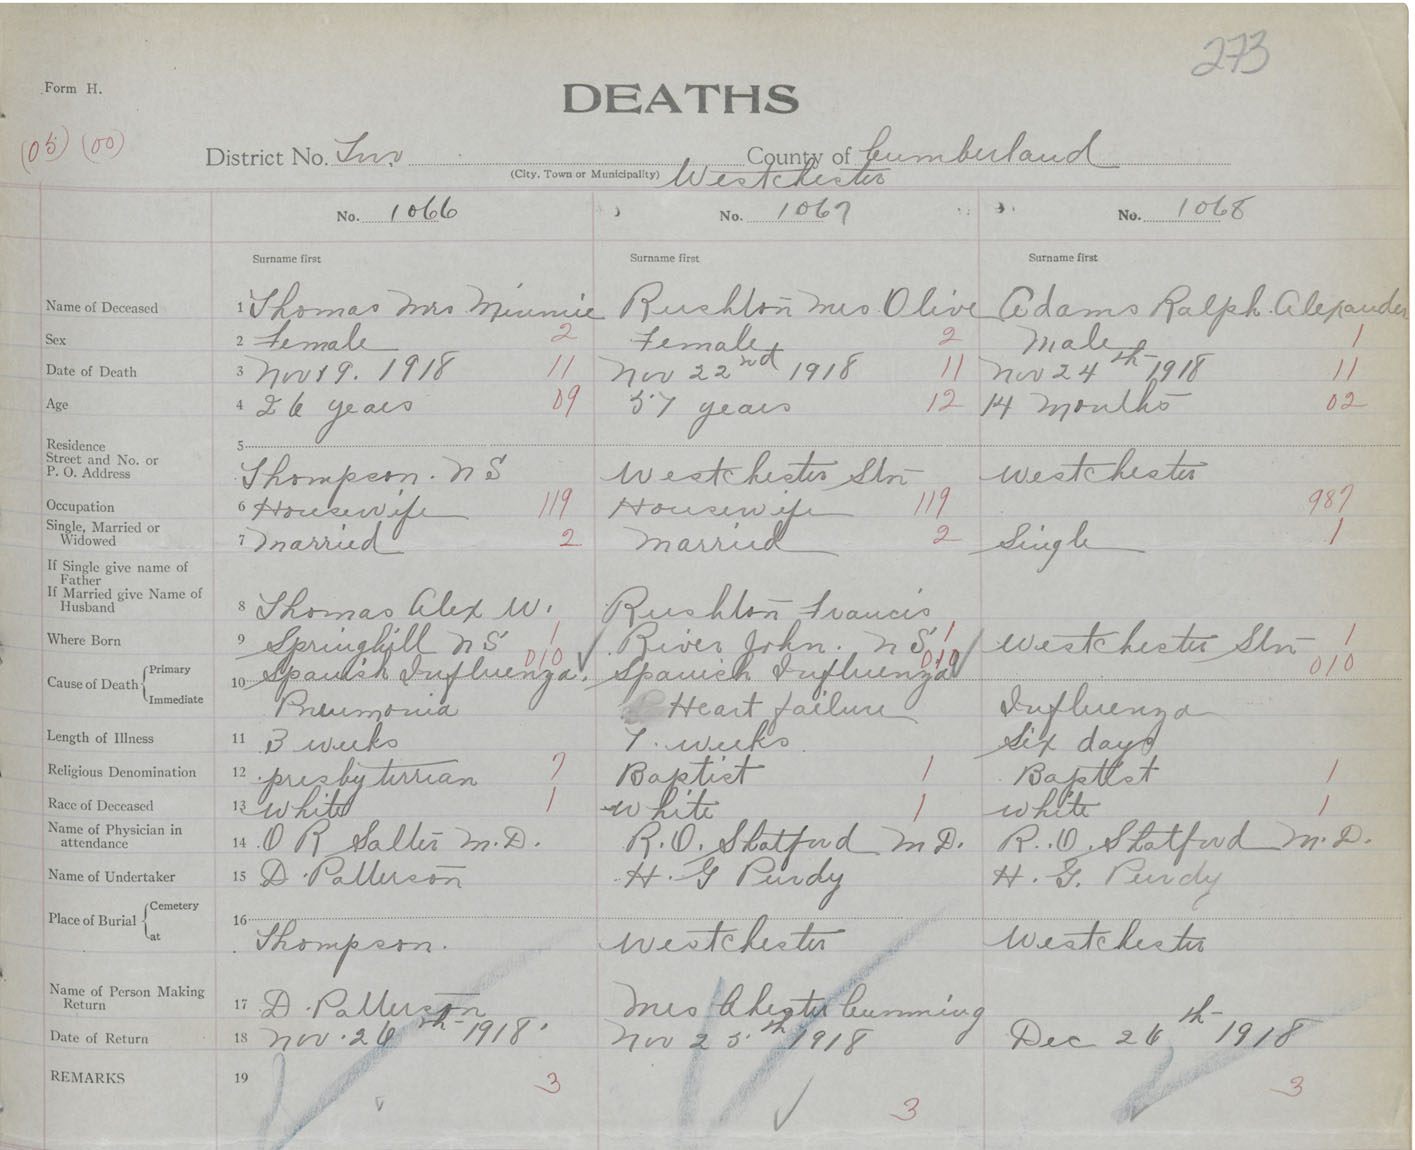 273
Form H.
DEATHS
(05) (00)
District No. Two County of Cumberland
(City, Town or Municipality) Westchester
No. 1066 No. 1067 No. 1068
Surname first Surname first Surname first
Name of Deceased 1 Thomas Mrs Minnie Rushton Mrs Olive Adams Ralph Alexander
Sex 2 Female 2 Female 2 Male 1
Date of Death 3 Nov 19. 1918 11 Nov 22nd 1918 11 Nov 24th 1918 11
Age 4 26 years 09 57 years 12 14 Months 02
Residence 5
Street and No. or
P. O. Address Thompson. N S Westchester Stn Westchester
Occupation 6 Housewife 119 Housewife 119 987
Single, Married or
Widowed 7 Married 2 Married 2 Single 1
If Single give name of
Father
If Married give Name of
Husband 8 Thomas Alex W. Rushton Francis
Where Born 9 Springhill N S 1 River John. N S 1 Westchester Stn 1
010 010 010
Cause of Death Primary 10 Spanish Influenza. Spanish Influenza
Immediate Pneumonia Heart failure Influenza
Length of Illness 11 3 weeks 7. weeks Six days
Religious Denomination 12 presbyterrian 7 Baptist 1 Baptist 1
Race of Deceased 13 White 1 White 1 White 1
Name of Physician in
attendance 14 O R Salter M.D. R. O. Shatford M D. R. O. Shatford M. D.
Name of Undertaker 15 D. Patterson H. G Purdy H. G. Purdy
Place of Burial Cemetery 16
at Thompson. Westchester Westchester
Name of Person Making
Return 17 D. Patterson Mrs Chester Cumming
Date of Return 18 Nov. 26th 1918. Nov 25.th 1918 Dec 26th 1918
REMARKS 19 3 3 3